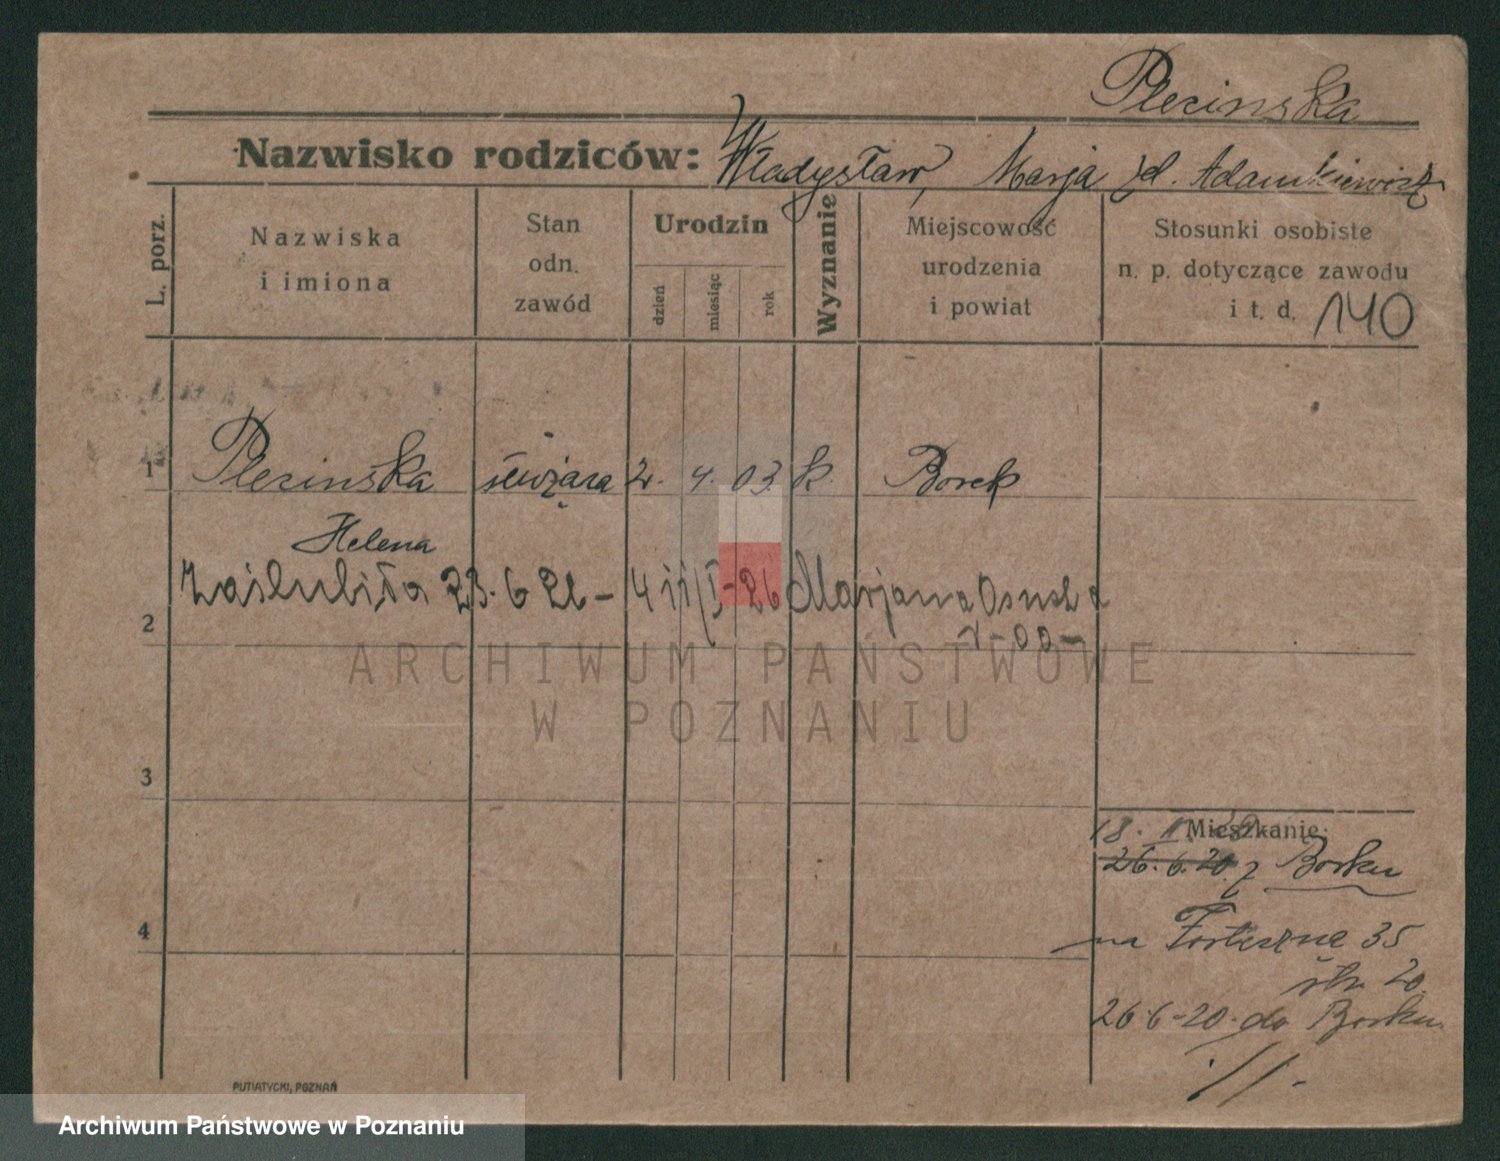 Plezinska
Nazwisko rodziców: Władysław, Marja zd. Adamkiewicz
L. porz.
Nazwiska
i imiona
Stan
odn.
zawód
Urodzin
dzień
miesiąc
rok
Wyznanie
Miejscowość
urodzenia
i powiat
Stosunki osobiste
n. p. dotyczące zawodu
i t. d. 140
1 Plezinska służąca 2. 4. 03. k. Borek
Helena
zaślubiła 23.6 26 - 26 Marjana
2 -00-
ARCHIWUM PAŃSTWOWE
W POZNANIU
3
Mieszkanie:
18.
26.6.20 z Borku
4
na Forteczne 35
str. 20.
26.6-20. do Borku
PUTIATYCKI, POZNAŃ
Archiwum Państwowe w Poznaniu